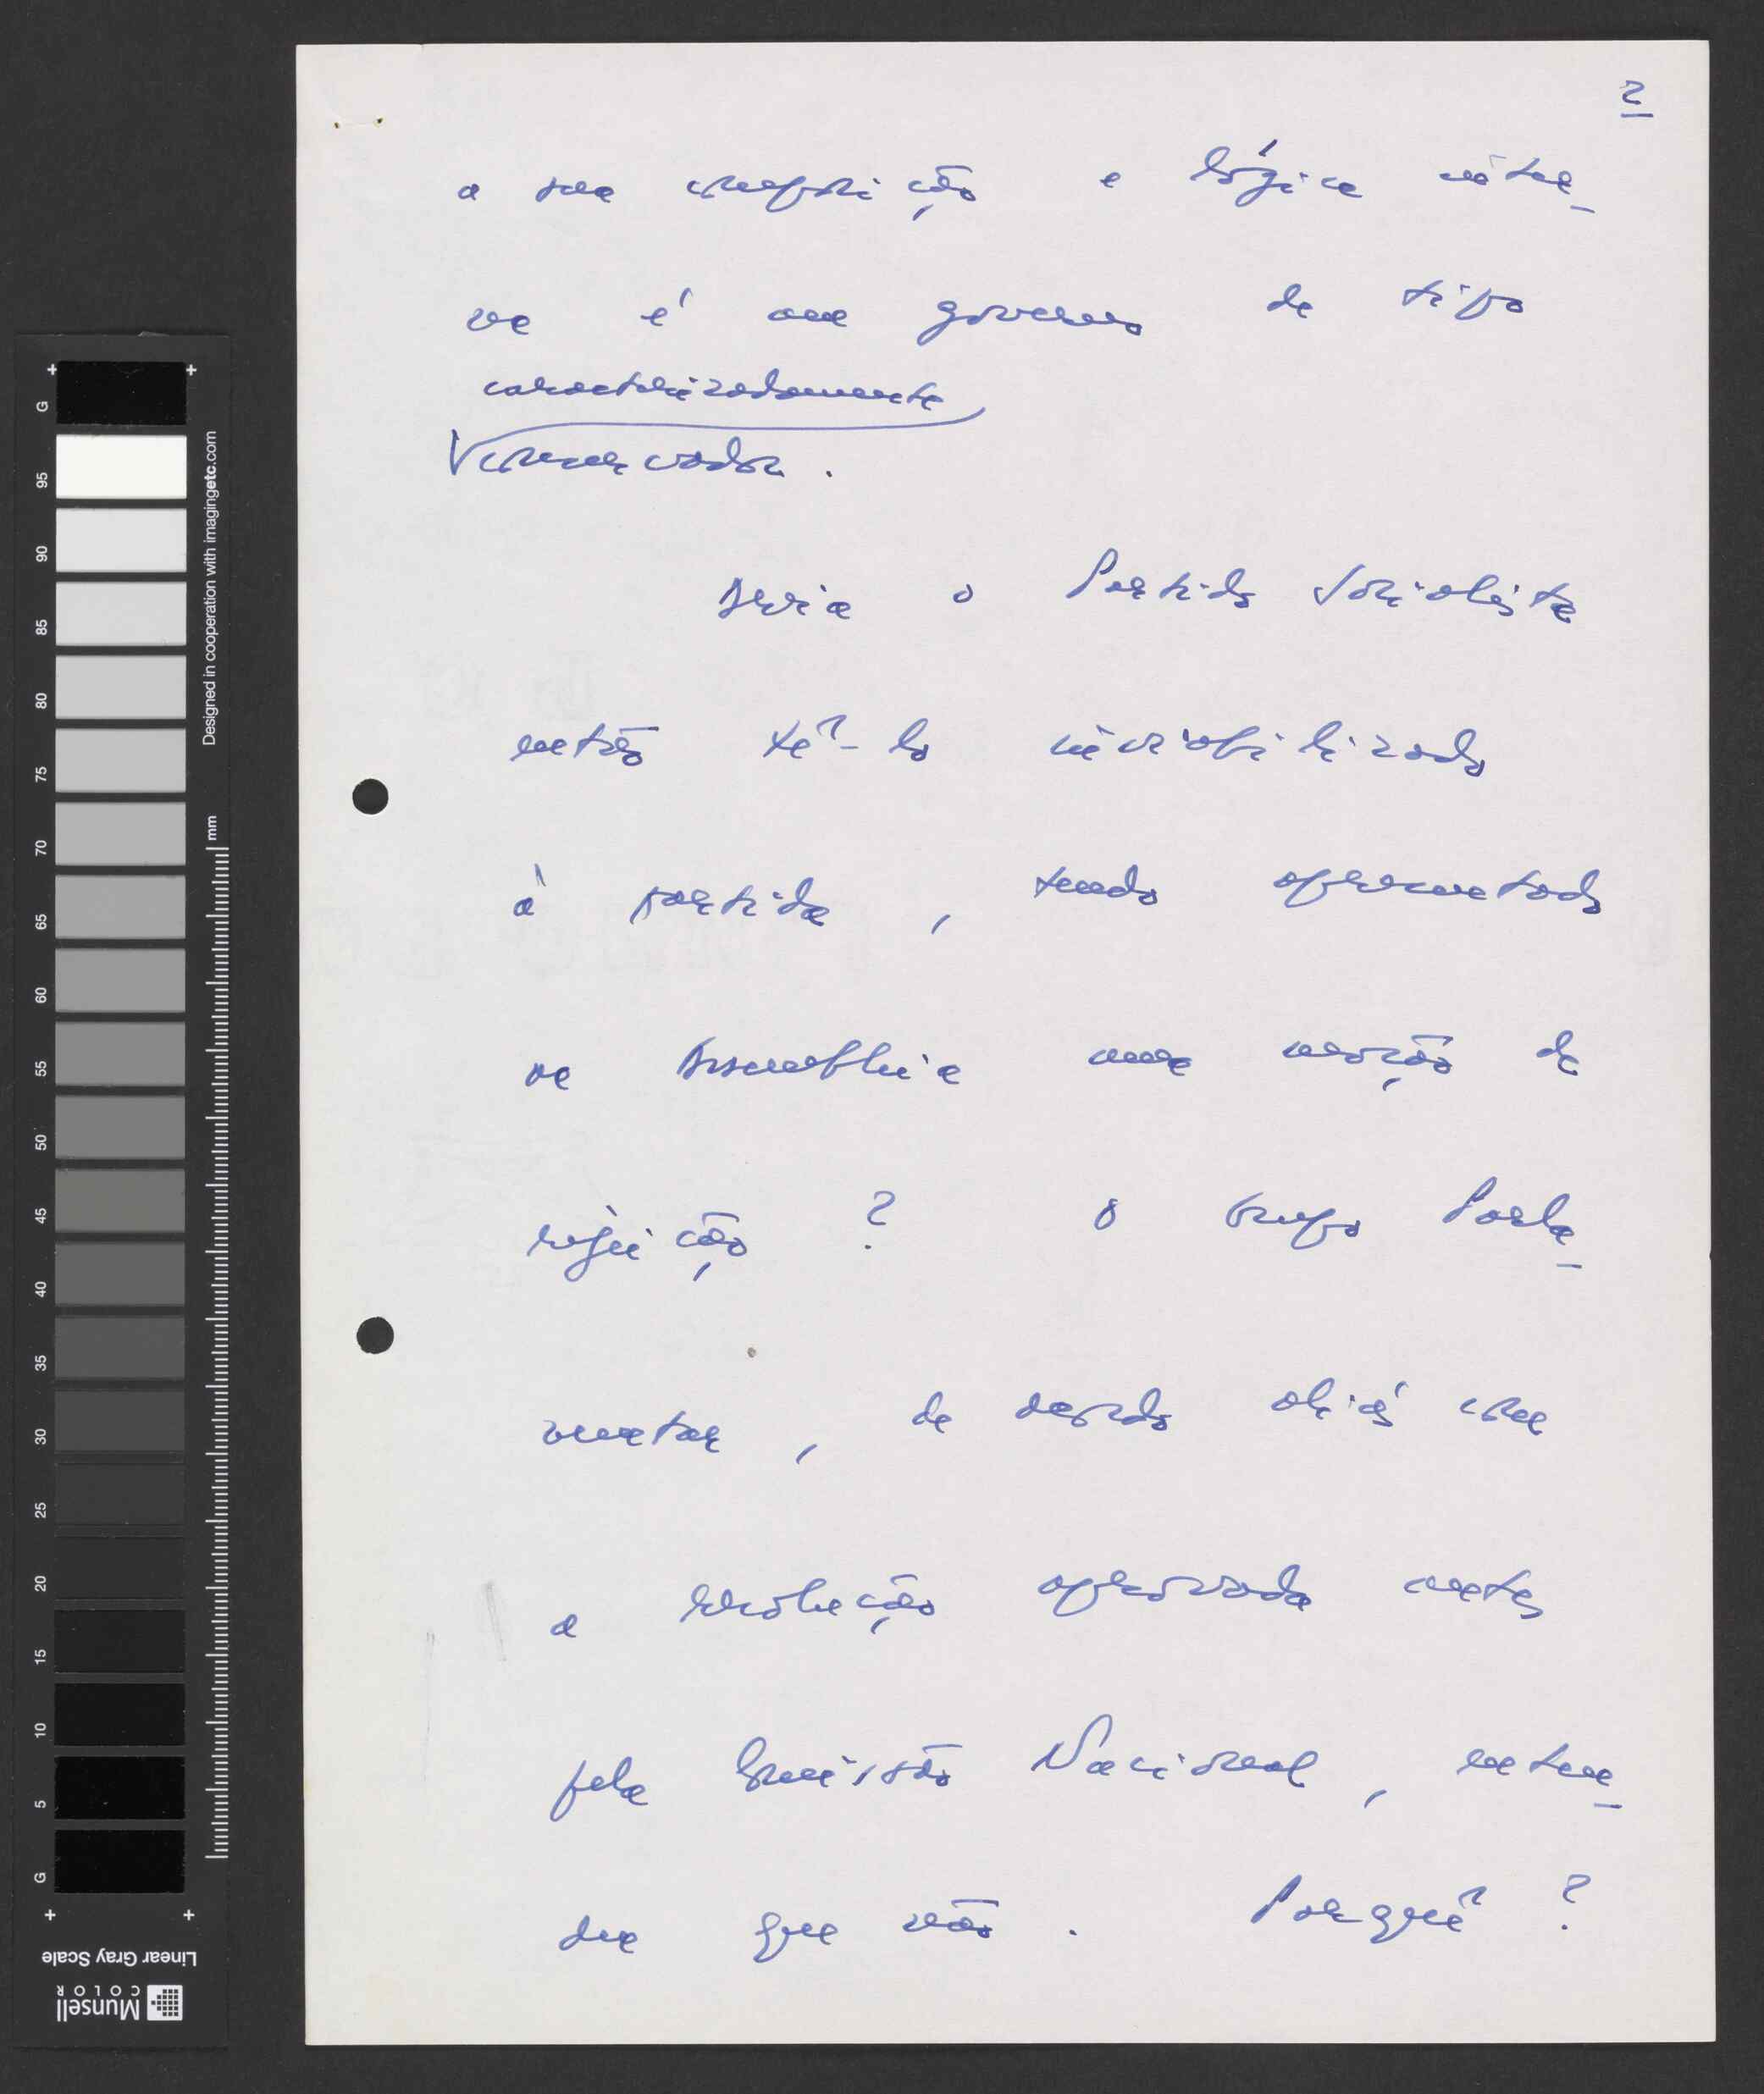 2
a sua composição e lógica inter_
na é um governo de tipo
caracterizadamente
conservador.
Devia o Partido Socialista
então tê-lo inviabilizado
à partida, tendo apresentado
na Assembleia uma moção de
rejeição? O Grupo Parla_
mentar, de acordo aliás com
a resolução aprovada antes
pela Comissão Nacional, enten_
deu que não. Porquê?
G
95
90
85
80
75
70
65
60
55
50
45
40
35
30
25
20
15
10
5
G
Designed in cooperation with imagingetc.com
mm
Linear Gray Scale
Munsell
COLOR